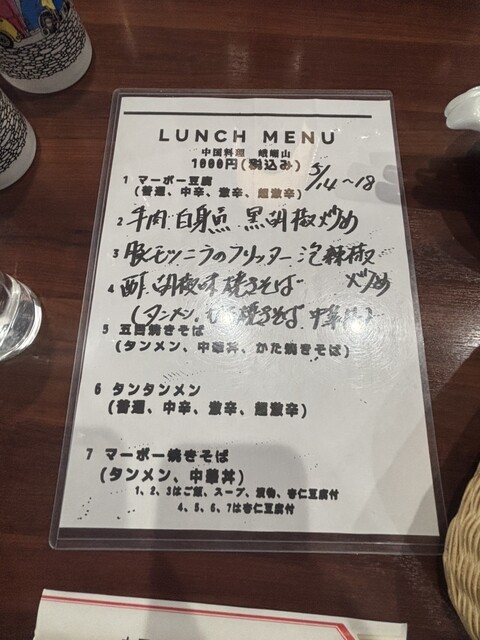 LUNCH MENU
中国料理 峨嵋山
1000円(税込み)
5/14~18
1 マーボー豆腐
(普通、中辛、激辛、超激辛)
2 牛肉 白身魚 黒胡椒炒め
3 豚モツニラのフリッター 泡辣椒
炒め
4 酢胡椒味焼きそば
(タンメン、 焼きそば 中華丼)
5 五目焼きそば
(タンメン、中華丼、かた焼きそば)
6 タンタンメン
(普通、中辛、激辛、超激辛)
7 マーボー焼きそば
(タンメン、中華丼)
1、2、3はご飯、スープ、漬物、杏仁豆腐付
4、5、6、7は杏仁豆腐付